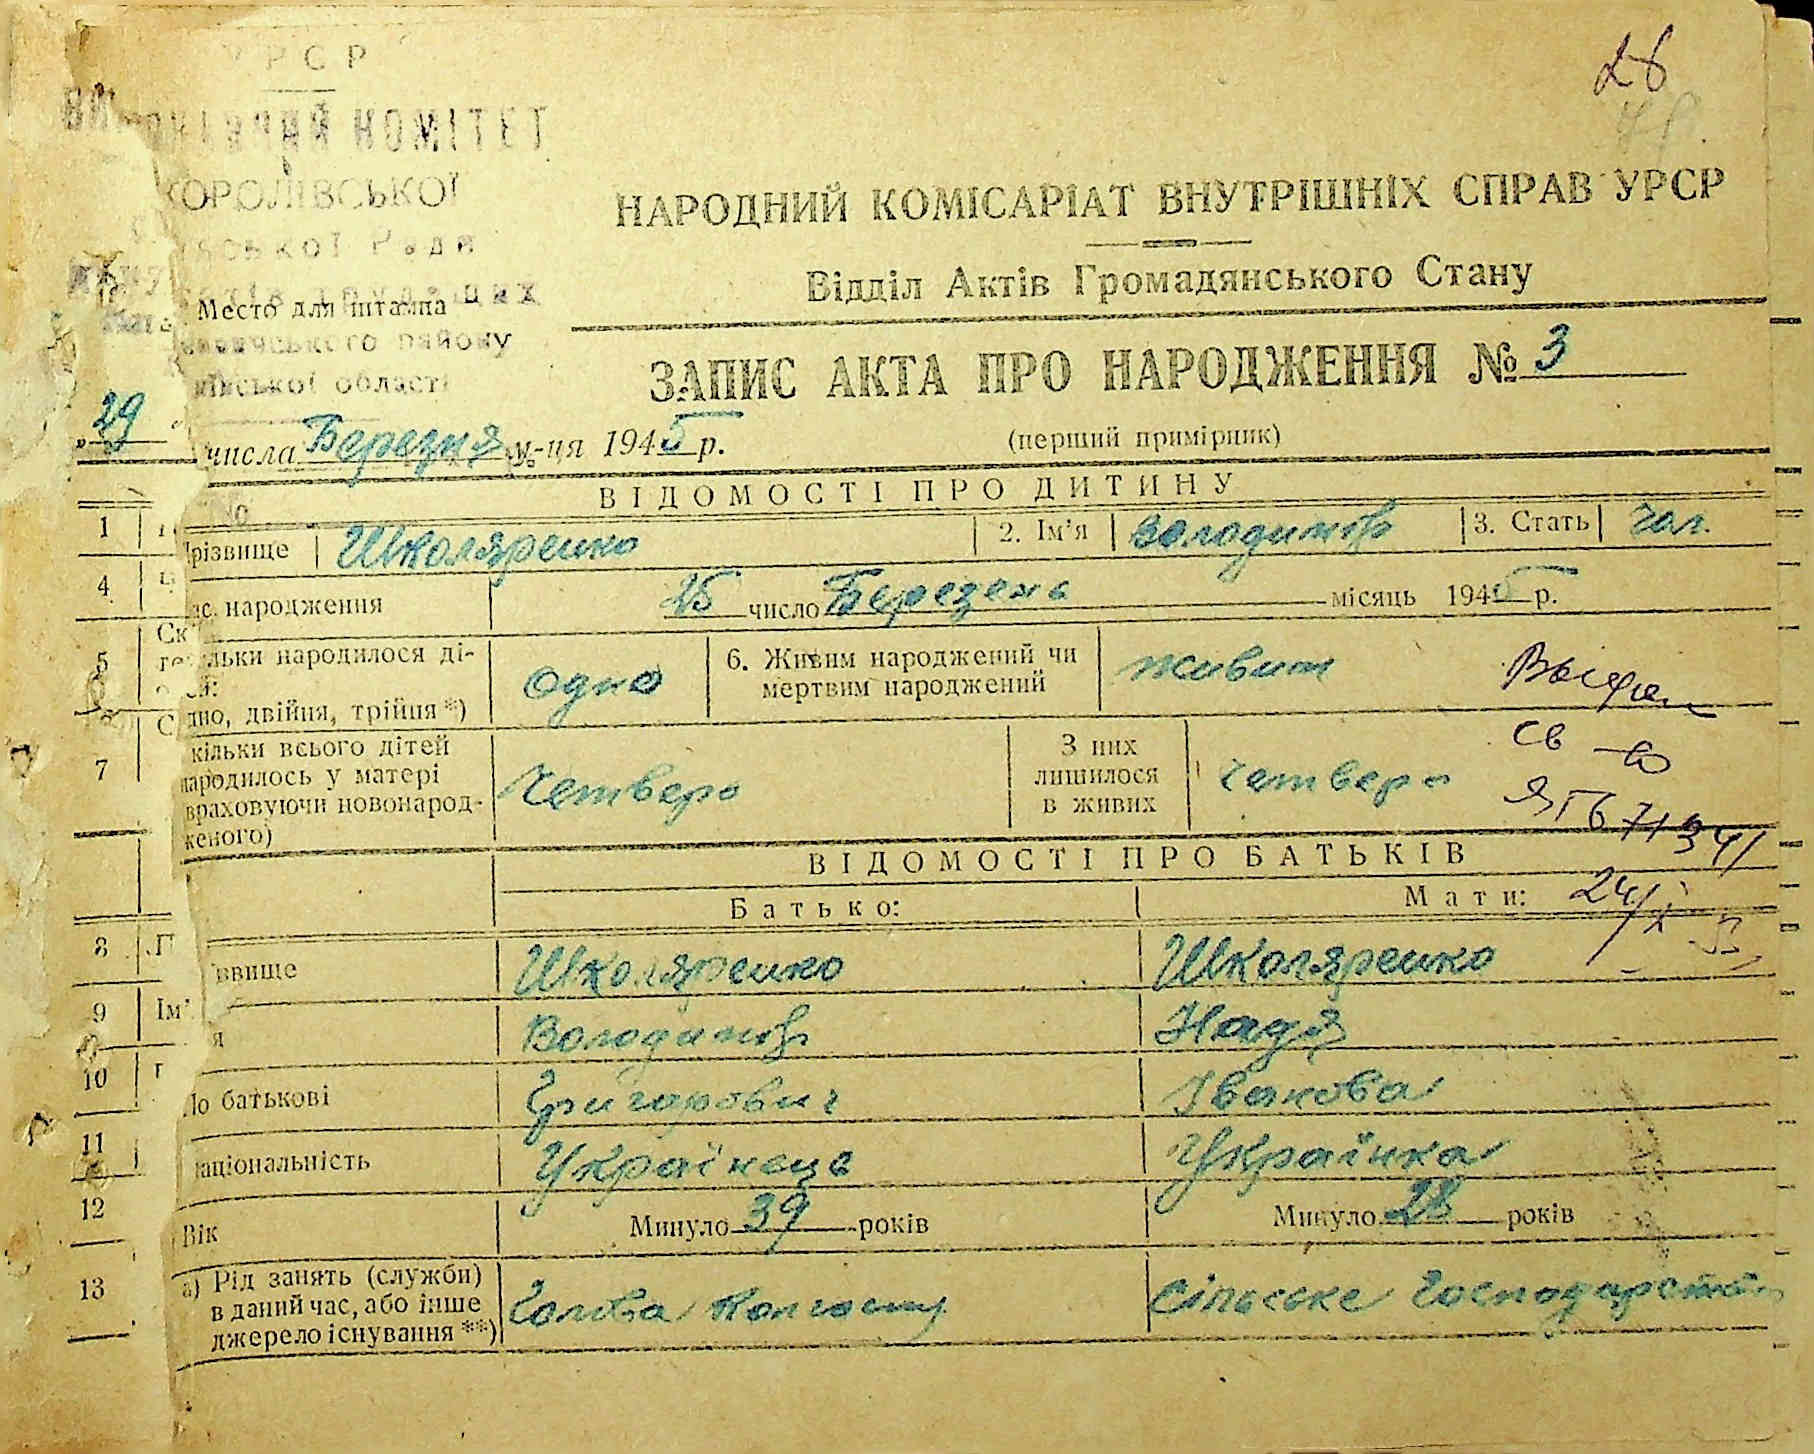 УРСР
КОМІТЕТ
КОРОЛІВСЬКОЇ
Ради
Место для штампа
району
області
28
НАРОДНИЙ КОМІСАРІАТ ВНУТРІШНІХ СПРАВ УРСР
Відділ Актів Громадянського Стану
ЗАПИС АКТА ПРО НАРОДЖЕННЯ № 3
„29" числа Березня м-ця 1945 р.
(перший примірник)
ВІДОМОСТІ ПРО ДИТИНУ
1 Прізвище Школяренко 2. Ім'я Володимір 3. Стать Чол.
4 Час народження 25 число Березень місяць 1945 р.
5 Скільки народилося дітей: одно, двійня, трійня*) Одно 6. Живим народжений чи мертвим народжений живим
7 Скільки всього дітей народилось у матері враховуючи новонародженого) Четверо З них лишилося в живих Четверо
св-во
ЯГ671341
ВІДОМОСТІ ПРО БАТЬКІВ
Батько: Мати:
8 Прізвище Школяренко Школяренко
9 Ім'я Володимір Надя
10 По батькові Григорович Іванова
11 Національність Українець Українка
12 Вік Минуло 39 років Минуло 28 років
13 а) Рід занять (служби) Голова Колгоспу Сільське Господарство
в даний час, або інше
джерело існування **)